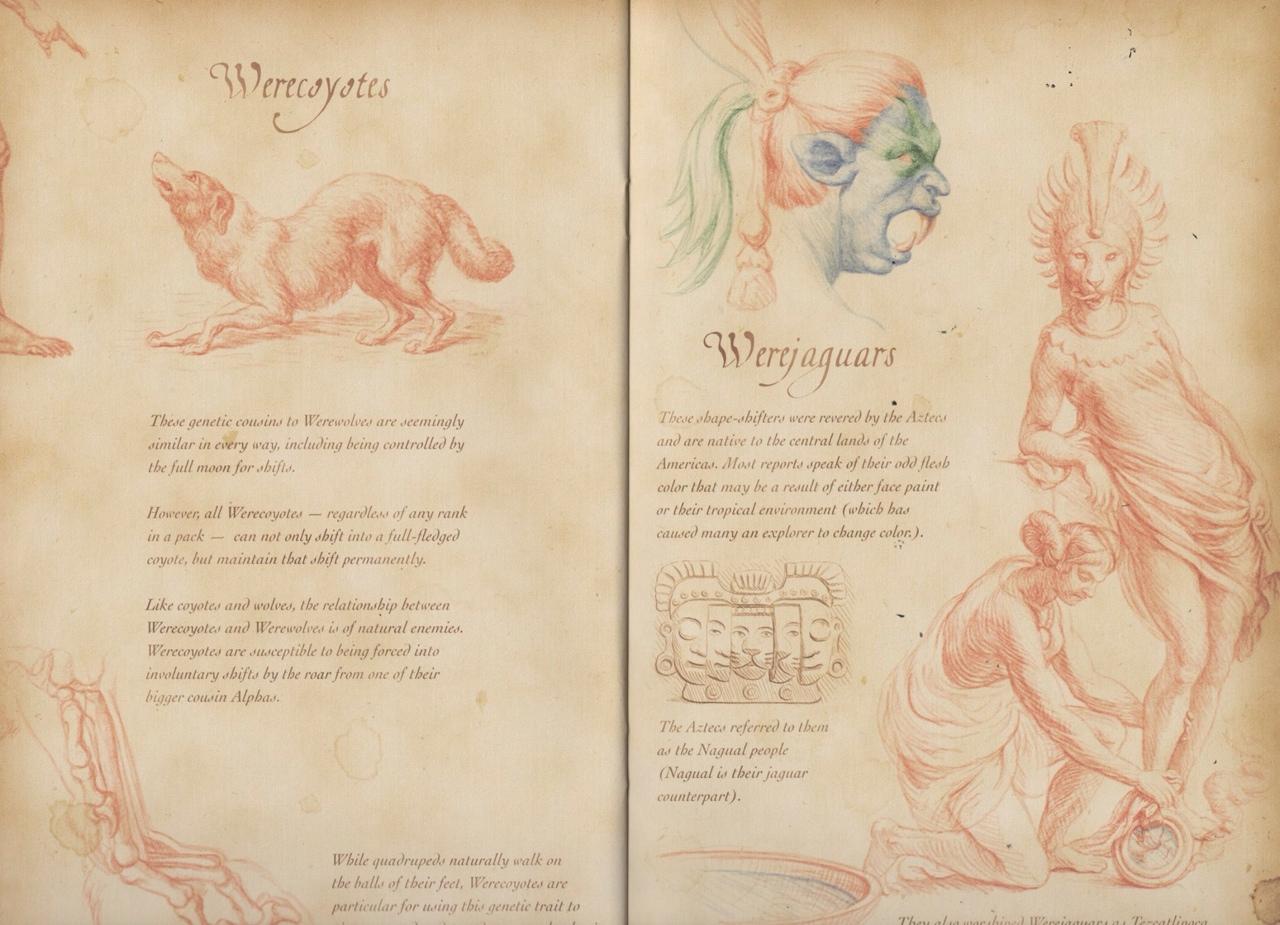 Werecoyotes
These genetic cousins to Werewolves are seemingly
similar in every way, including being controlled by
the full moon for shifts.
However, all Werecoyotes — regardless of any rank
in a pack — can not only shift into a full-fledged
coyote, but maintain that shift permanently.
Like coyotes and wolves, the relationship between
Werecoyotes and Werewolves is of natural enemies.
Werecoyotes are susceptible to being forced into
involuntary shifts by the roar from one of their
bigger cousin Alphas.
While quadrupeds naturally walk on
the balls of their feet, Werecoyotes are
particular for using this genetic trait to
Werejaguars
These shape-shifters were revered by the Aztecs
and are native to the central lands of the
Americas. Most reports speak of their odd flesh
color that may be a result of either face paint
or their tropical environment (which has
caused many an explorer to change color.).
The Aztecs referred to them
as the Nagual people
(Nagual is their jaguar
counterpart).
They also worshiped Werejaguars as Tezcatlipoca